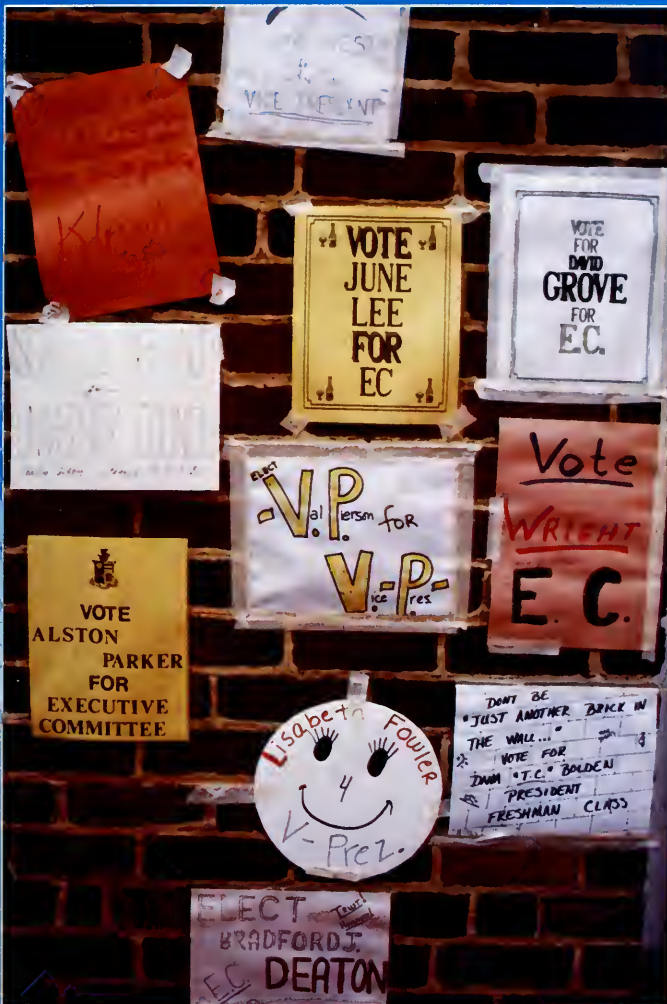 VICE
VOTE
JUNE
LEE
FOR
EC
VOTE
FOR
DAVID
GROVE
FOR
E.C.
ELECT
-Val Pierson FOR
Vice-Pres-
Vote
WRIGHT
E. C.
VOTE
ALSTON
PARKER
FOR
EXECUTIVE
COMMITTEE
Lisabeth Fowler
4
V-Prez.
DONT BE
"JUST ANOTHER BRICK IN
THE WALL..."
VOTE FOR
DANA "T.C." BOLDEN
PRESIDENT
FRESHMAN CLASS
ELECT
BRADFORD J.
E.C. DEATON